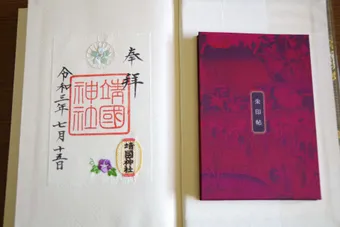 奉拝
靖國神社
令和三年七月十五日
靖國神社
朱印帖